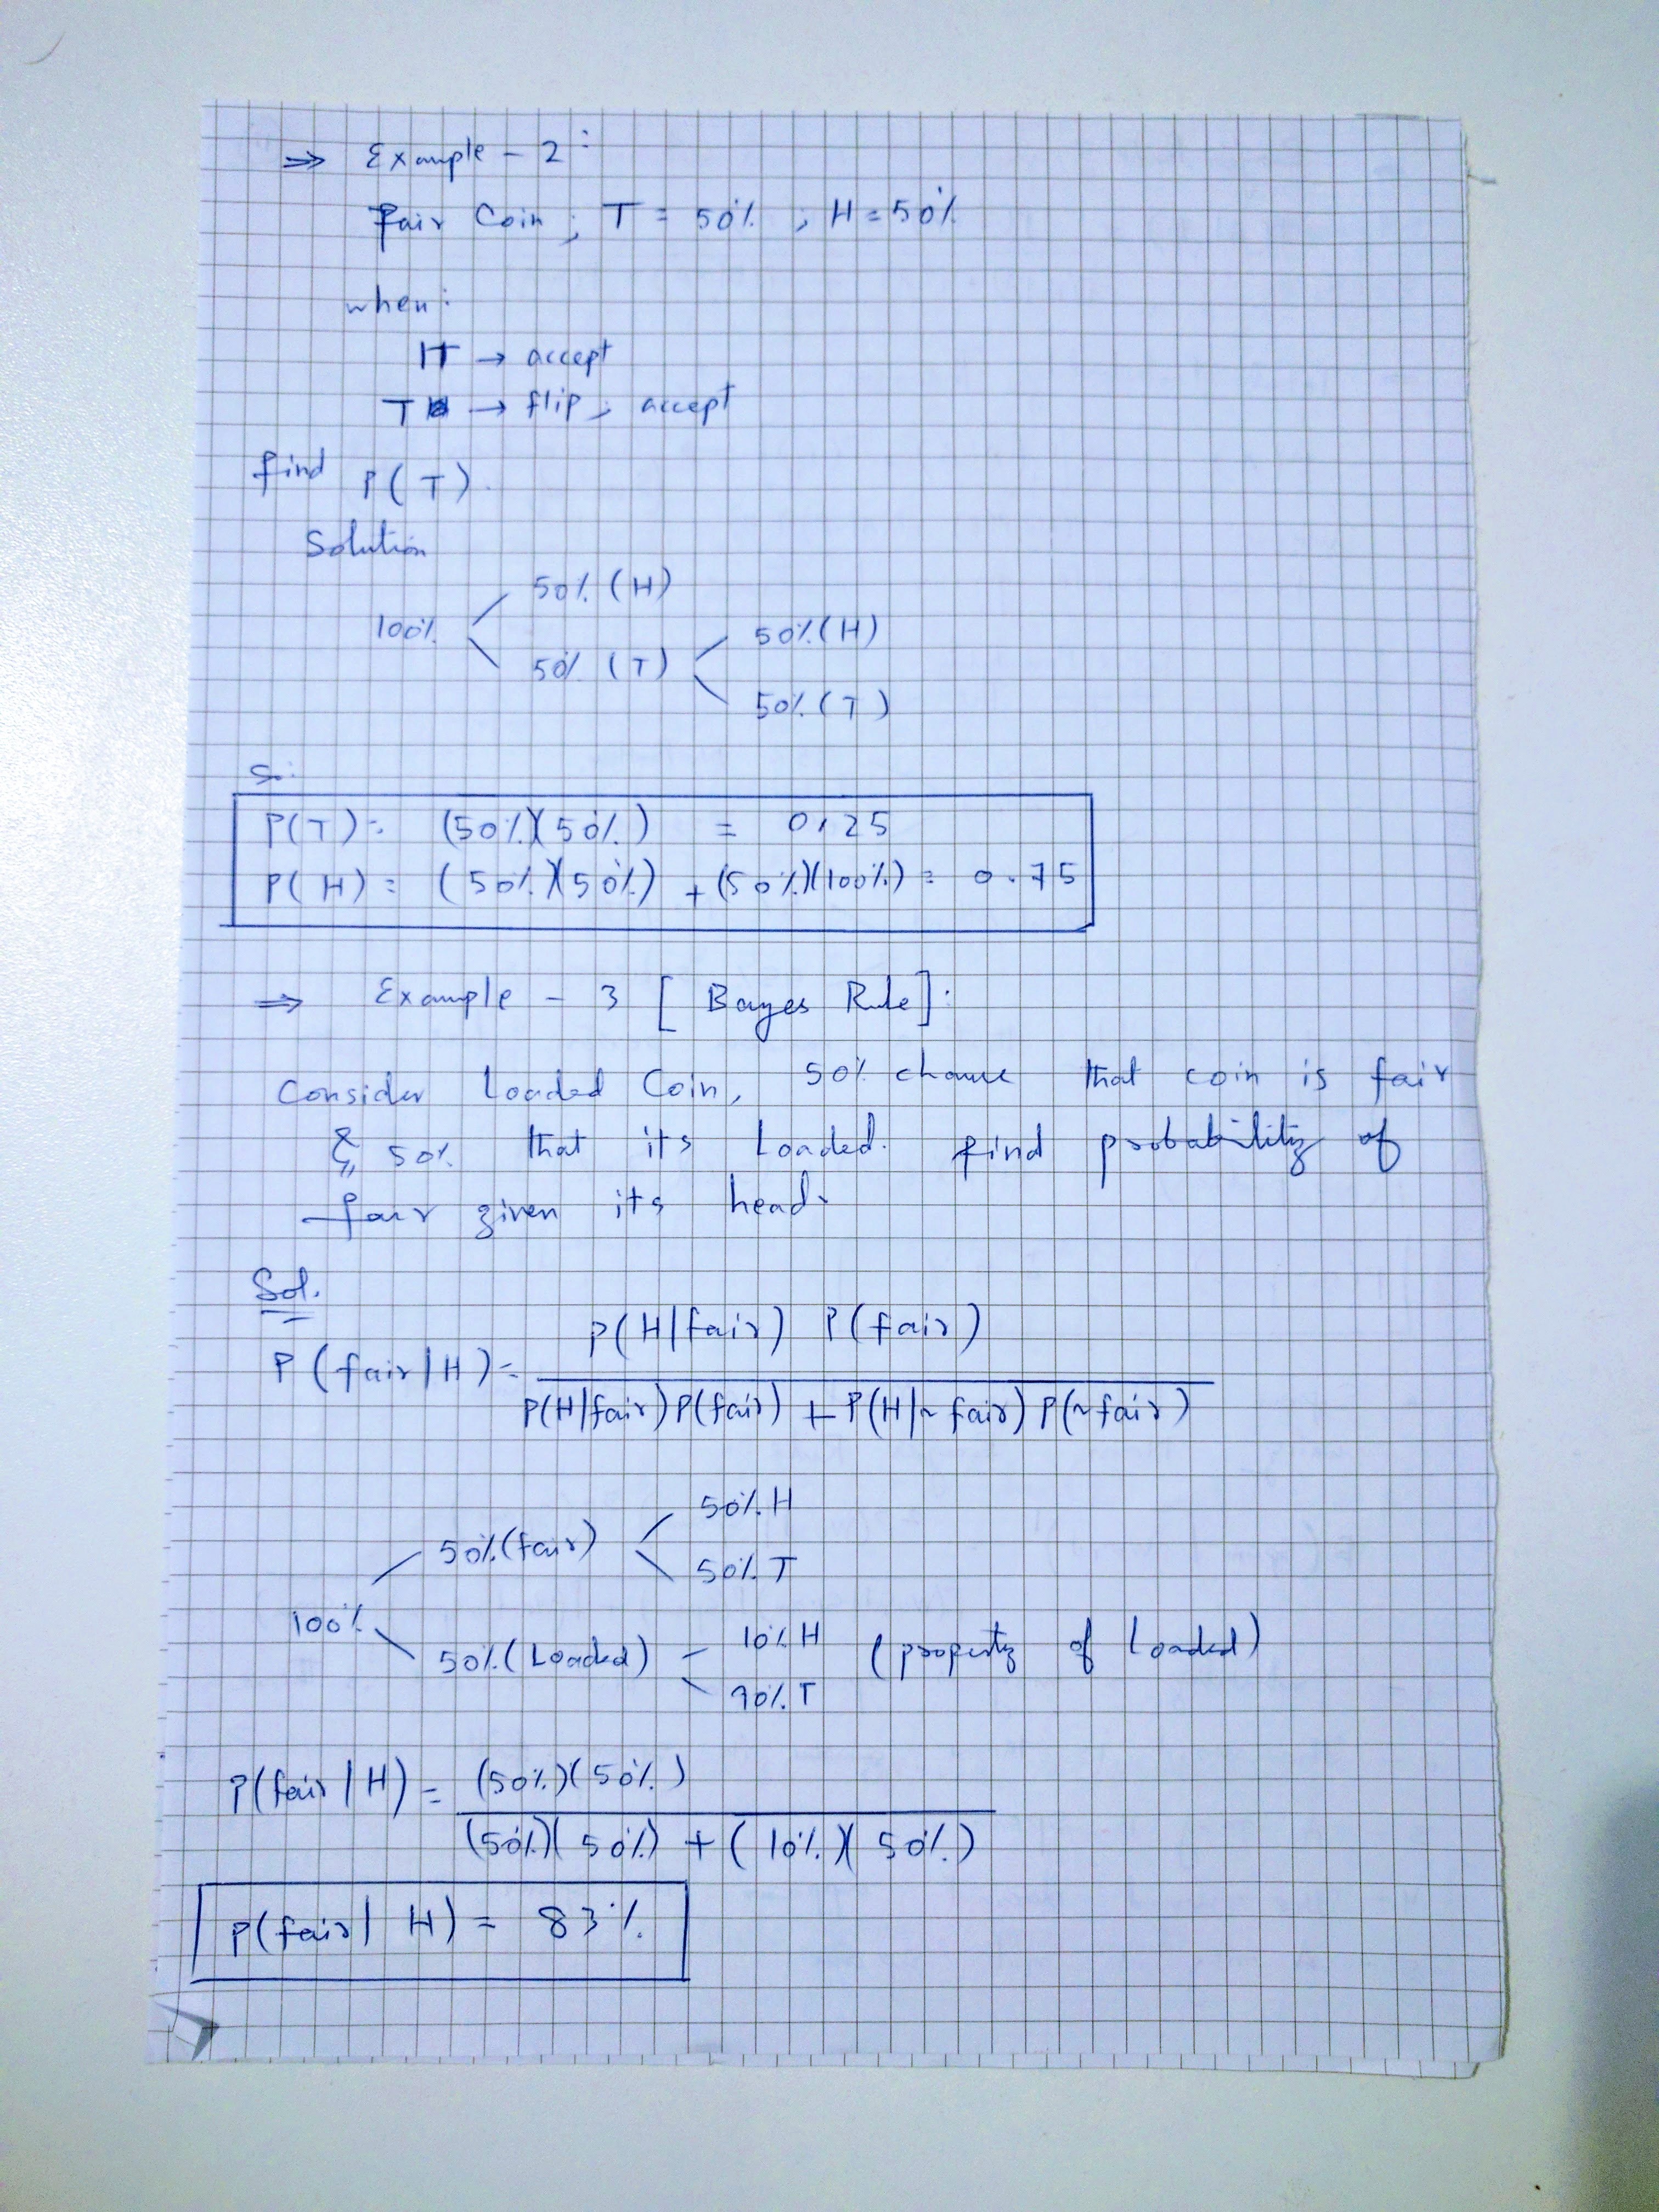 ⇒ Example - 2:
Fair Coin ; T = 50% , H = 50%
when:
H → accept
T → flip, accept
find P(T).
Solution
50% (H)
100%
50% (H)
50% (T)
50% (T)
So:
P(T) = (50%)(50%) = 0.25
P(H) = (50%)(50%) + (50%)(100%) = 0.75
⇒ Example - 3 [ Bayes Rule ]:
Consider Loaded Coin, 50% chance that coin is fair
& 50% that its Loaded. find probability of
fair given its head.
Sol.
P(H|fair) P(fair)
P(fair|H) =
P(H|fair) P(fair) + P(H|~fair) P(~fair)
50% H
50% (fair)
50% T
100%
10% H (property of Loaded)
50% (Loaded)
90% T
P(fair|H) = (50%)(50%)
(50%)(50%) + (10%)(50%)
P(fair|H) = 83%